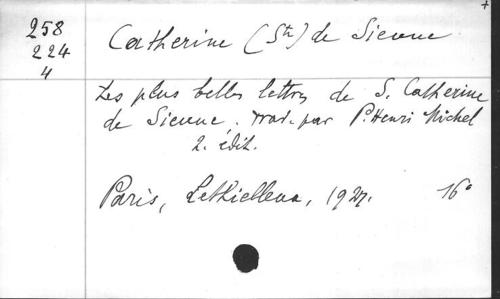 258
224
4
Catherine (Ste) de Sienne
Les plus belles lettres de S. Catherine
de Sienne, trad. par P. Henri Michel
2. édit.
Paris, Lethielleux, 1927. 16°